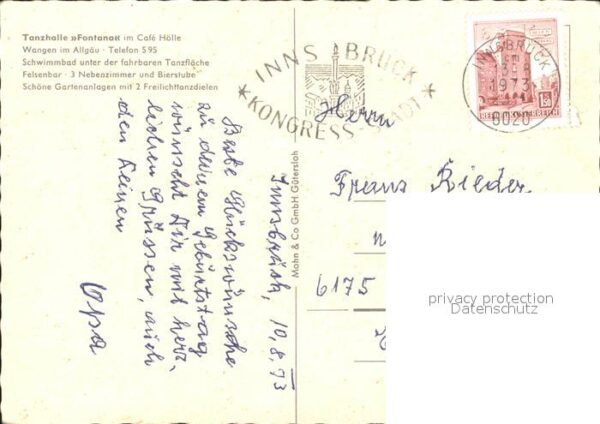 Tanzhalle »Fontana« im Café Hölle
Wangen im Allgäu · Telefon 595
Schwimmbad unter der fahrbaren Tanzfläche
Felsenbar · 3 Nebenzimmer und Bierstube
Schöne Gartenanlagen mit 2 Freilichttanzdielen
Beste Glückwünsche
zu deinem Geburtstag
wünscht Dir mit herz-
lichen Grüssen, auch
den Deinen
Opa
Innsbruck, 10.8.73
Mohn & Co GmbH Gütersloh
INNSBRUCK
KONGRESS-STADT
INNSBRUCK
1973
6020
1.50
REPUBLIK ÖSTERREICH
Herrn
Franz Rieder
6175
privacy protection
Datenschutz